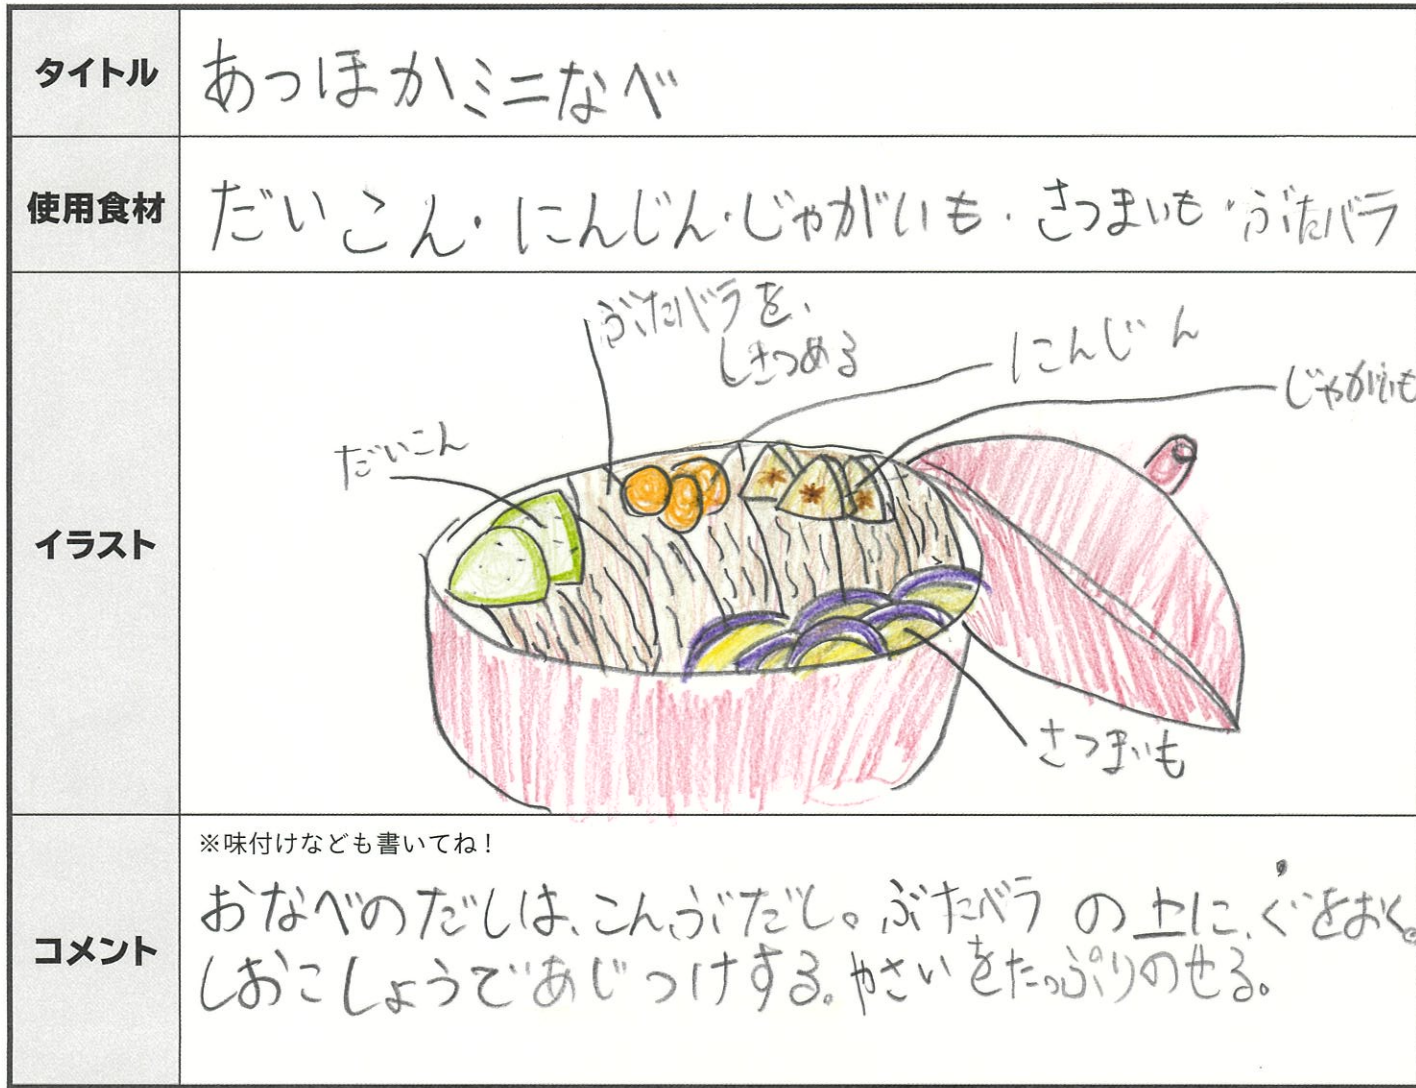 タイトル
あっほかミニなべ
使用食材
だいこん・にんじん・じゃがいも・さつまいも・ぶたバラ
イラスト
ぶたバラを、
しきつめる
にんじん
じゃがいも
だいこん
さつまいも
コメント
※味付けなども書いてね!
おなべのだしは、こんぶだし。ぶたバラの上に、ぐをおく。
しおこしょうであじつけする。やさいをたっぷりのせる。